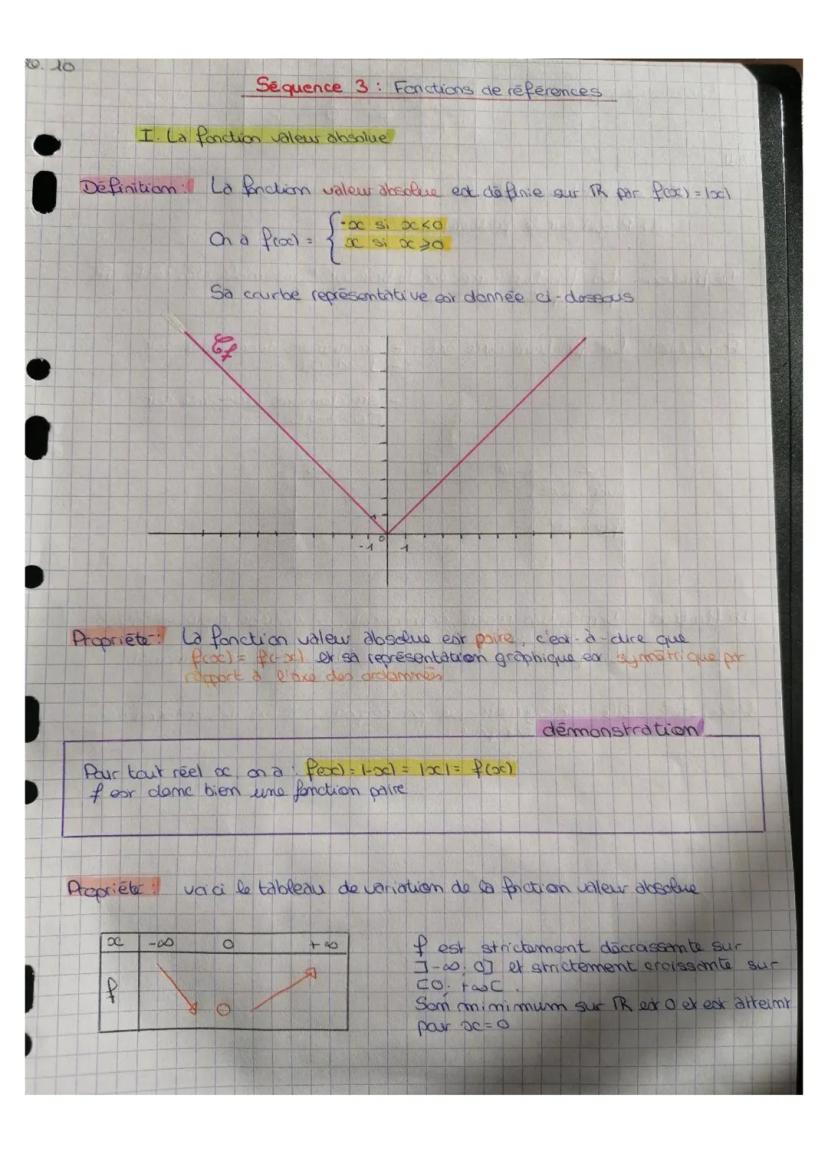 10
Séquence 3 : Fonctions de références
I. La fonction valeur absolue
Définition : La fonction valeur absolue est définie sur ℝ par f(x) = |x|
On a f(x) = { -x si x<0
x si x⩾0
Sa courbe représentative est donnée ci-dessous
Cf
-1 0 1
Propriété : La fonction valeur absolue est paire, c'est-à-dire que
f(x) = f(-x) et sa représentation graphique est symétrique pr
rapport à l'axe des ordonnées
démonstration
Pour tout réel x, on a : f(x) = |-x| = |x| = f(x)
f est donc bien une fonction paire
Propriété : voici le tableau de variation de la fonction valeur absolue
x -∞ 0 +∞
f 0
f est strictement décrassante sur
]-∞; 0] et strictement croissante sur
[0; +∞[.
Son minimum sur ℝ est 0 et est atteint
par x=0